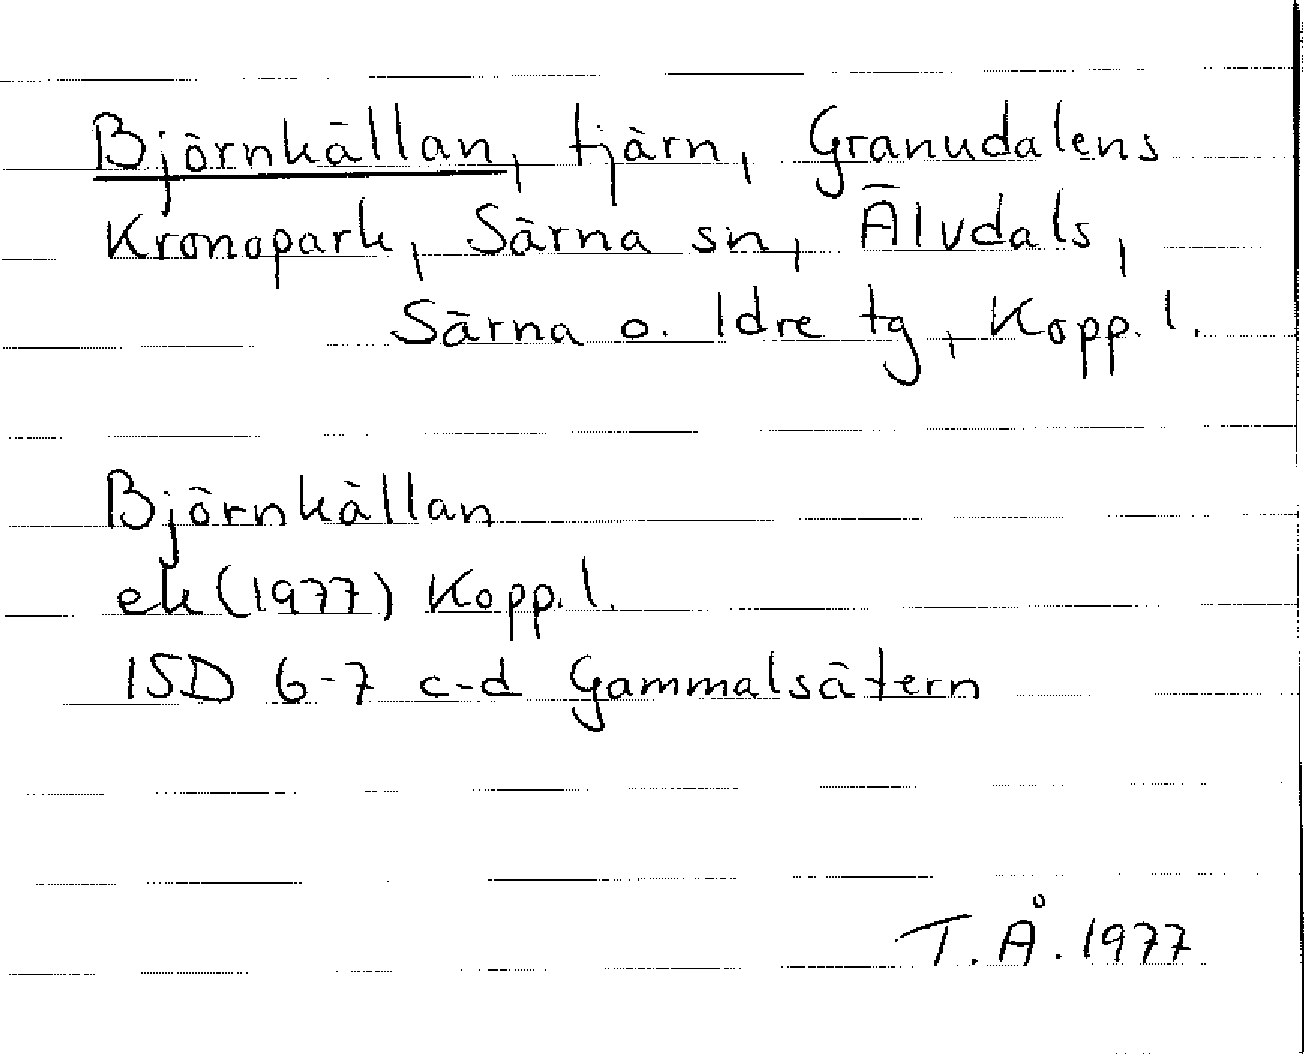 Björnkällan, tjärn, Granudalens
Kronopark, Särna sn, Älvdals,
Särna o. Idre tg, Kopp. l.
Björnkällan
ek (1977) Kopp. l.
15D 6-7 c-d Gammalsätern
T.Å. 1977